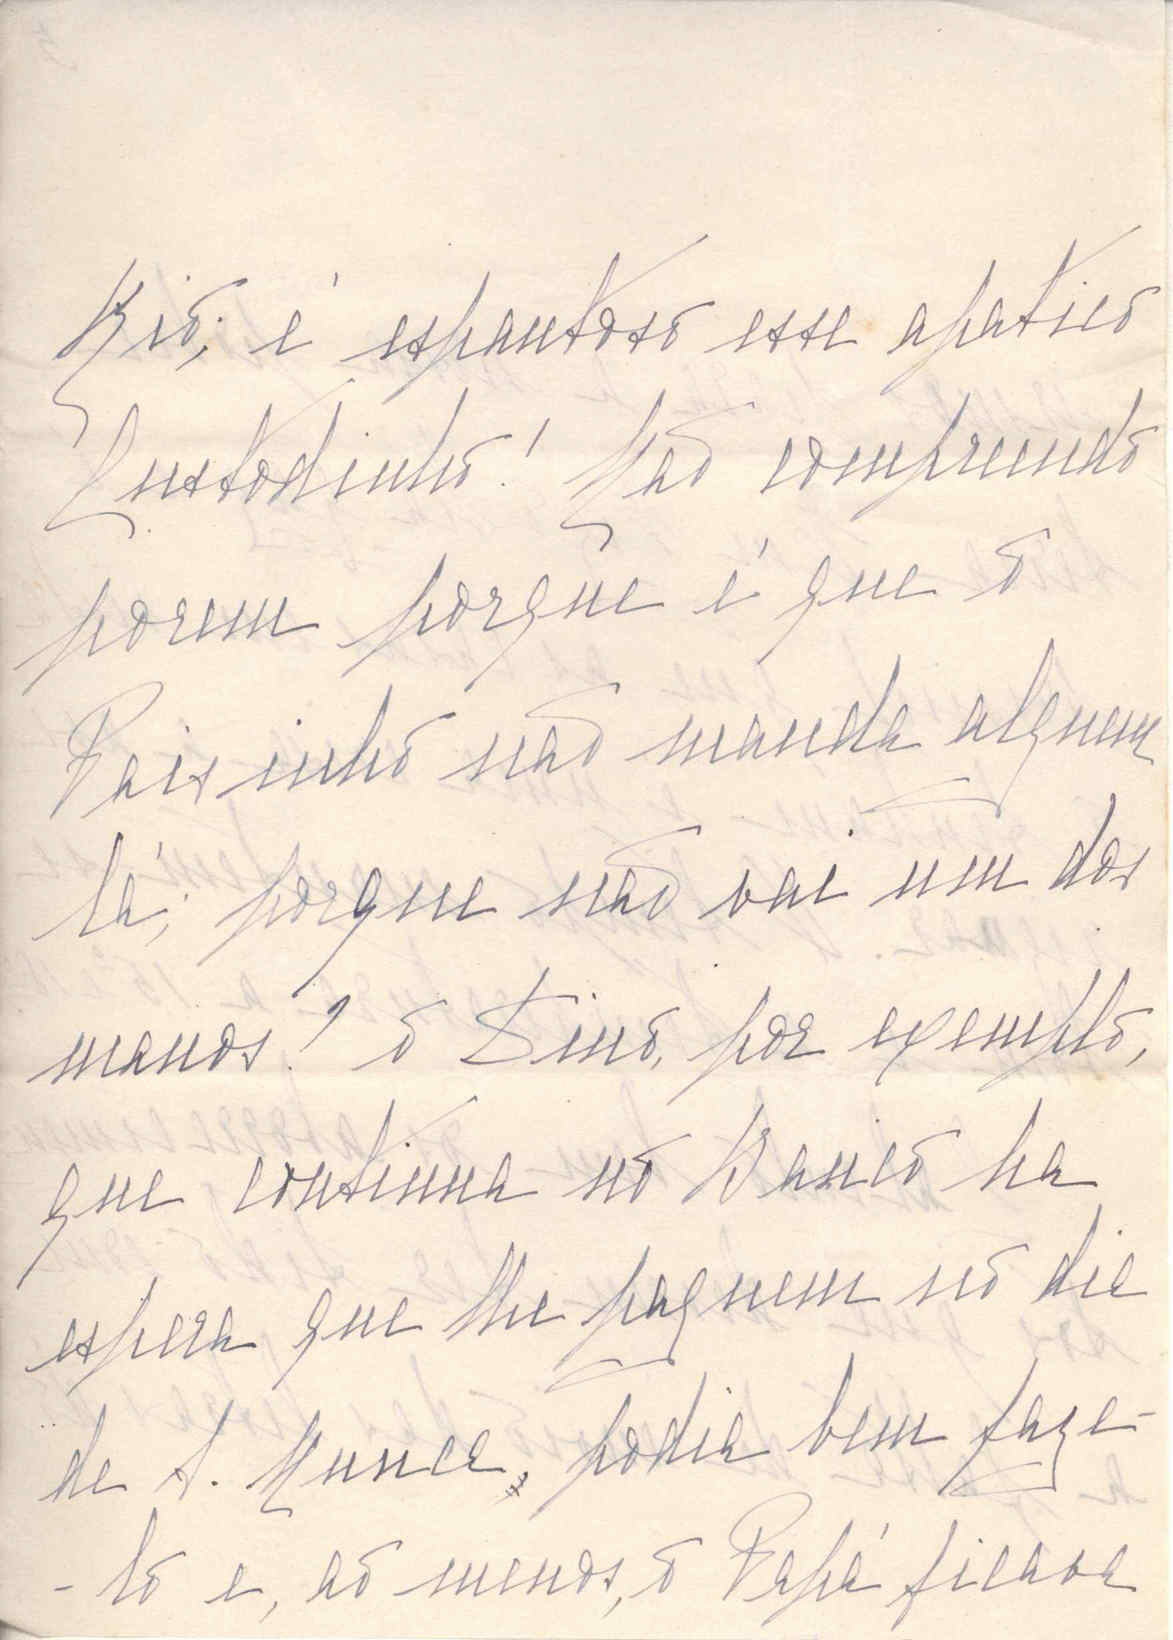 Rio; é espantoso esse apatico
Custodinho! Não compreendo
porem porque é que o
Paisinho não manda alguem
lá; porque não vai um dos
manos? o Dino, por exemplo,
que continua no Banco ha
espera que lhe paguem no dia
de S. Nunca, podia bem faze-
-lo e, ao menos, o Papá ficava